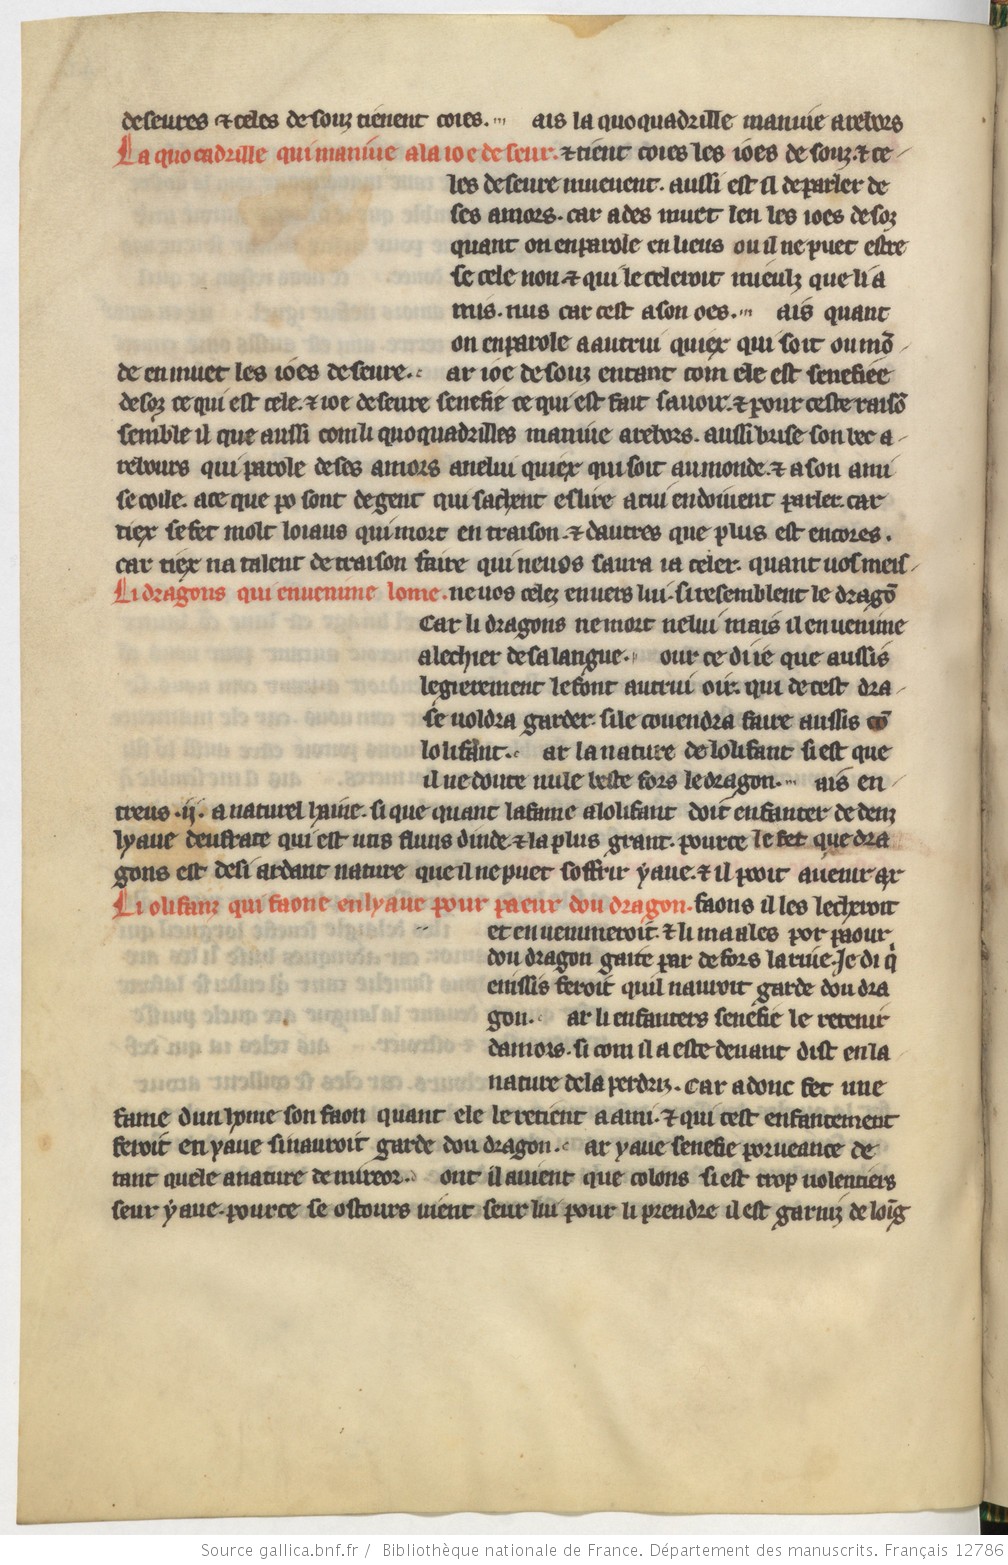 deseures ⁊ celes de souz tienent coies. ais la quoquadrille maniue a rebors
La quocadrille qui maniue a la ioe deseur. ⁊ tient coies les ioes de souz. ⁊ ce
les deseure muevent. aussi est il de parler de
ses amors. car ades muet len les ioes desoz
quant on en parole en lieus ou il ne puet estre
se cele non. ⁊ qui le celeroit mieulz que li a
mis. nus car cest a son oes. ais quant
on en parole a autrui quiex qui soit ou mō
de en muet les ioes deseure. ar ioe de souz entant com ele est senefiee
desoz ce qui est cele. ⁊ ioe deseure senefie ce qui est fait sauoir. ⁊ pour ceste raisō
semble il que aussi com li quoquadrilles maniue a rebors. aussi brise son bec a
rebours qui parole de ses amors a nelui quiex qui soit au monde. ⁊ a son ami
se coile. a ce que po sont de gent qui sachent eslire a cui en doiuent parler. car
tiex se fet molt loiaus qui mort en traison. ⁊ dautres que plus est encores.
car tiex na talent de traison faire qui ne uos saura ia celer. quant uos meis
Li dragons qui enuenime lome. ne uos celez enuers lui. si resemblent le dragō
Car li dragons ne mort nelui mais il enuenime
a lechier de sa langue. our ce di ie que aussis
legierement le font autrui oir. qui de cest dra
se uoldra garder. si le couendra faire aussis cō
lolifant. ar la nature de lolifant si est que
il ne doute nule beste fors le dragon. ais en
treus .ij. a naturel hayne. si que quant la fame a lolifant doit enfanter dedenz
lyaue deufrate qui est uns fluns dinde ⁊ la plus grant. pource le fet que dra
gons est de si ardant nature que il ne puet soffrir yaue. ⁊ il pooit auenir as
Li olifanz qui faone en lyaue pour paeur dou dragon. faons il les lecheroit
et enuenimeroit. ⁊ li maales por paour
dou dragon gaite par defors la riue. Je di q̄
einssis feroit quil nauroit garde dou dra
gon. ar li enfanters senefie le retenir
damors. si com il a este deuant dist en la
nature de la perdriz. Car adonc fet une
fame dun home son faon quant ele le retient a ami. ⁊ qui cest enfantement
feroit en yaue si nauroit garde dou dragon. ar yaue senefie porueance de
tant quele a nature de mireor. ont il auient que colons si est trop uolentiers
seur yaue. pource se ostours uient seur lui pour li prendre il est garniz de loīg
Source gallica.bnf.fr / Bibliothèque nationale de France. Département des manuscrits. Français 12786